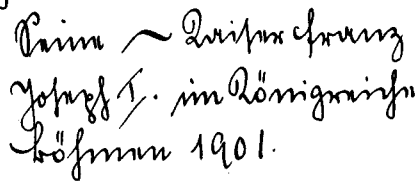 Seine ~ Kaiser Franz
Joseph I. im Königreiche
Böhmen 1901.